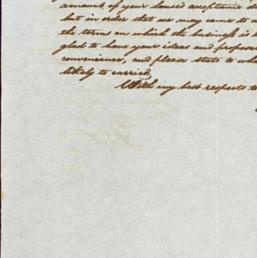 amount of your house's acceptance
but in order that we may come to
the terms on which the business is
glad to have your ideas and
convenience, and please state to
likely to carried,
With my best respects to